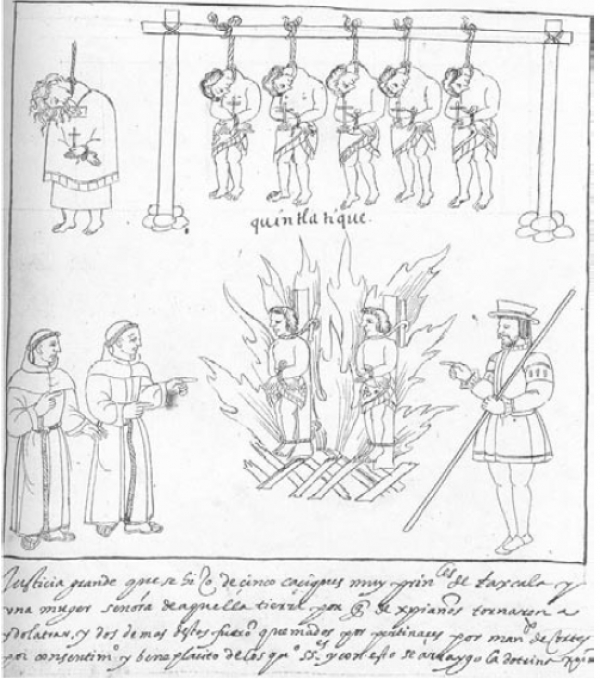 quintlatique.
Justicia grande que se hiço de cinco caciques muy prin^es de taxcala y
una muger señora de aquella tierra por q de xpianos tornaron a
ydolatrar, y dos demas destos fuerõ quemados por pertinaces por man^o de Cortes
por consentim^o y beneplacito de los qu^o ss^es y con esto se arraygo la dotrina